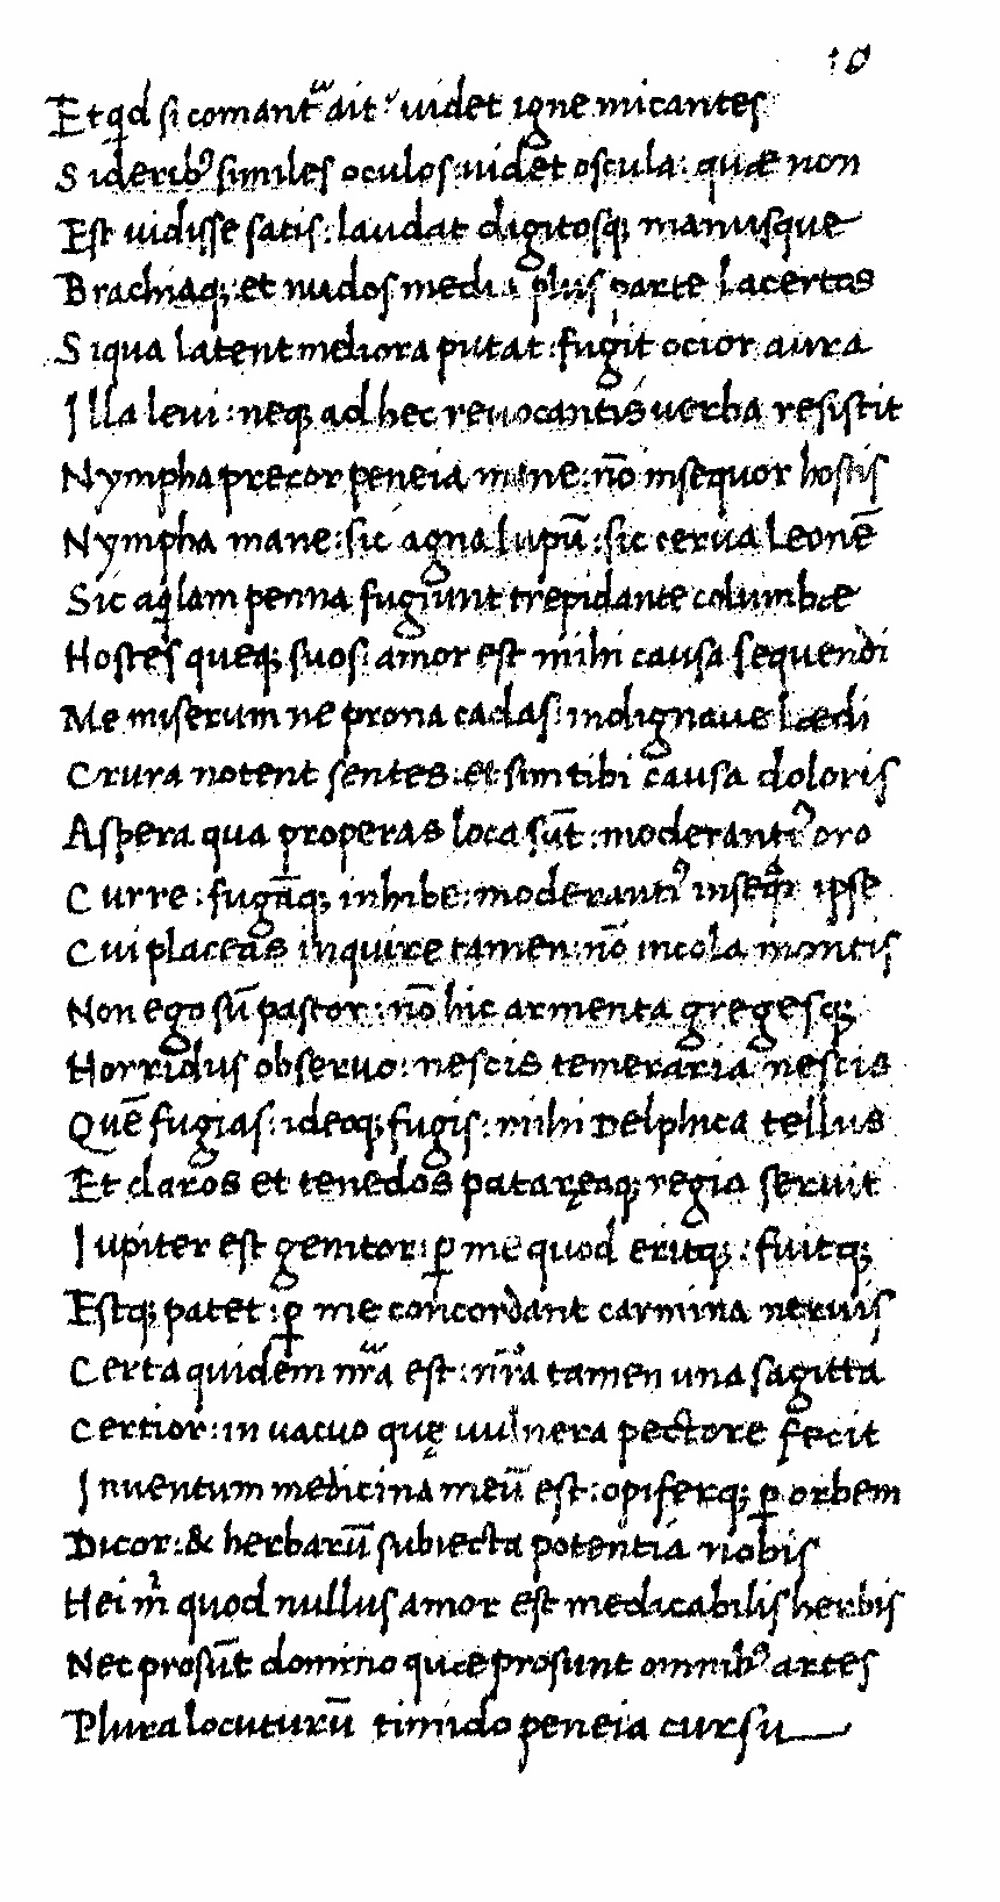 10
Et qd si comant͛ ait videt igne micantes
Siderib⁹ similes oculos: uidet oscula: quæ non
Est uidisse satis: laudat digitosq; manusque
Brachiaq; et nudos media plus parte lacertos
Siqua latent meliora putat: fugit ocior aura
Illa leui: neq; ad hec reuocantis uerba resistit
Nympha precor peneia mane: nō insequor hostis
Nympha mane: sic agna lupū: sic cerua leonē
Sic aqlam penna fugiunt trepidante columbæ
Hostes queq; suos: amor est mihi causa sequendi
Me miserum ne prona cadas: indignaue lædi
Crura notent sentes: et sim tibi causa doloris
Aspera qua properas loca sūt: moderanti⁹ oro
Curre: fugāq; inhibe: moderanti⁹ inseqr ipse
Cui placeas inquire tamen: nō incola montis
Non ego sū pastor: nō hic armenta gregesq;
Horridus obseruo: nescis temeraria nescis
Quē fugias: ideoq; fugis: mihi Delphica tellus
Et claros et tenedos pataręaq; regia seruit
Jupiter est genitor: ꝑ me quod eritq;: fuitq;
Estq; patet: ꝑ me concordant carmina neruis
Certa quidem nr̄a est: nr̄a tamen una sagitta
Certior: in uacuo quę uulnera pectore fecit
Inuentum medicina meū est: opiferq; ꝑ orbem
Dicor: & herbarū subiecta potentia nobis
Hei m̊ quod nullus amor est medicabilis herbis
Nec prosūt domino quæ prosunt omnib⁹ artes
Plura locuturū timido peneia cursu